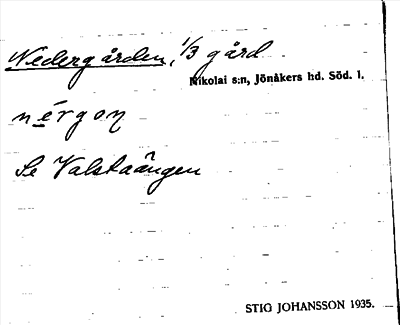 Nedergården, 1/3 gård
Nikolai s:n, Jönåkers hd. Söd. l.
nérgoņ
Se Valstaängen
STIG JOHANSSON 1935.